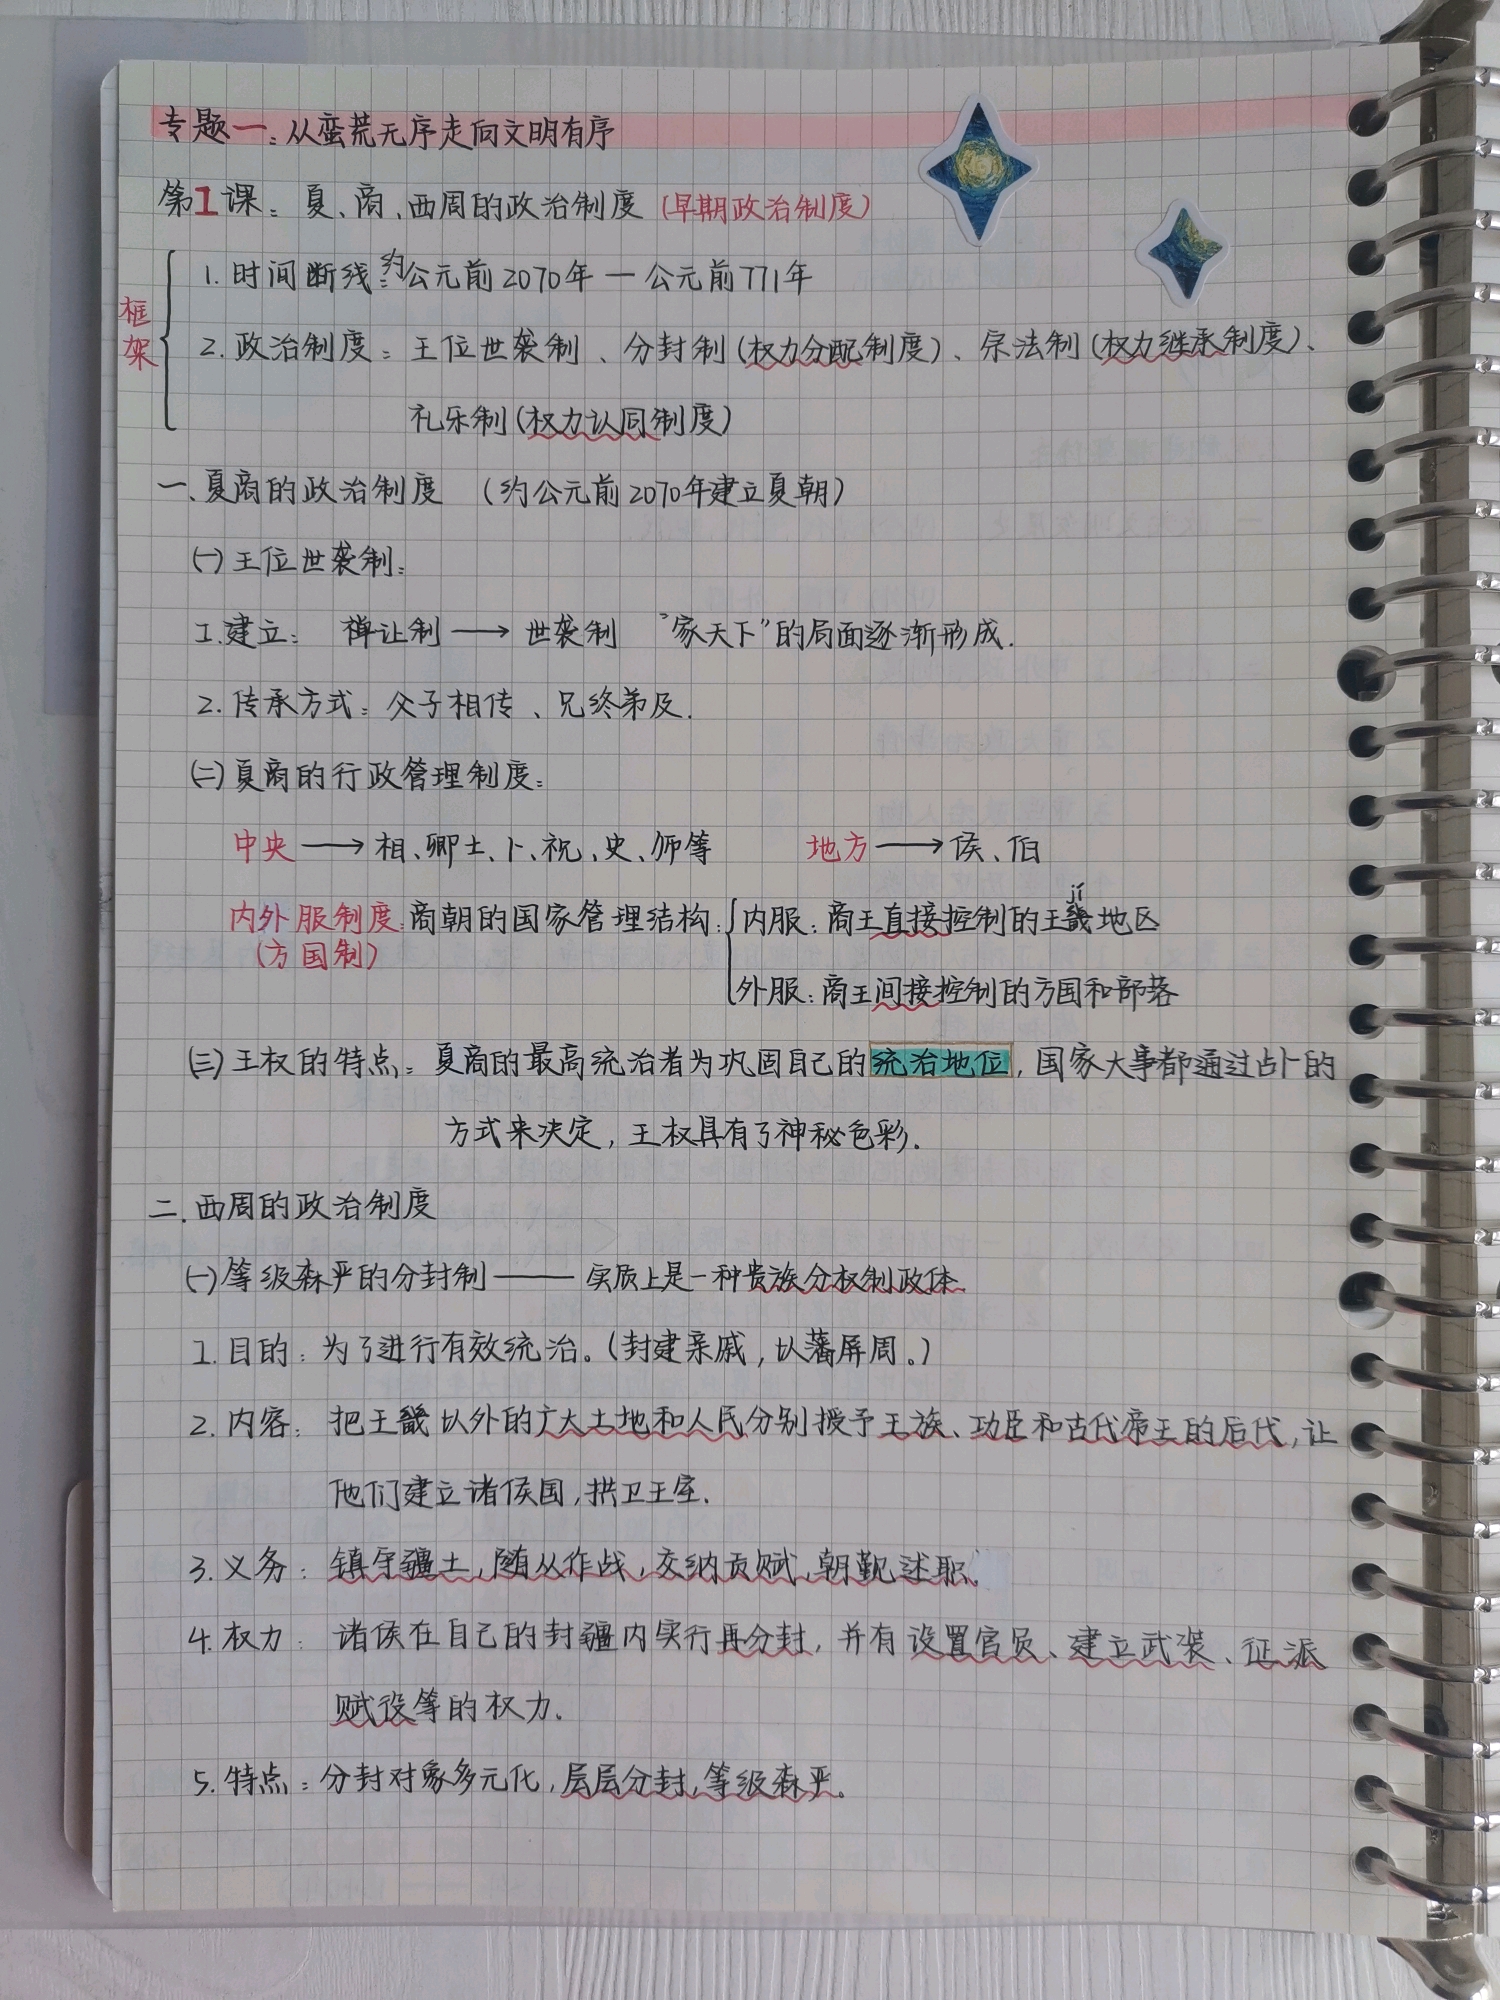 专题一:从蛮荒无序走向文明有序
第1课:夏、商、西周的政治制度(早期政治制度)
框架
1.时间断线:约公元前2070年—公元前771年
2.政治制度:王位世袭制、分封制(权力分配制度)、宗法制(权力继承制度)、
礼乐制(权力认同制度)
一、夏商的政治制度 (约公元前2070年建立夏朝)
㈠王位世袭制:
1.建立: 禅让制→世袭制 "家天下"的局面逐渐形成.
2.传承方式:父子相传、兄终弟及.
㈡夏商的行政管理制度:
中央→相、卿士、卜、祝、史、师等 地方→侯、伯
内外服制度:商朝的国家管理结构:内服:商王直接控制的王畿jī地区
(方国制)
外服:商王间接控制的方国和部落
㈢王权的特点:夏商的最高统治者为巩固自己的统治地位,国家大事都通过占卜的
方式来决定,王权具有了神秘色彩.
二.西周的政治制度
㈠等级森严的分封制——实质上是一种贵族分权制政体.
1.目的:为了进行有效统治。(封建亲戚,以藩屏周。)
2.内容:把王畿以外的广大土地和人民分别授予王族、功臣和古代帝王的后代,让
他们建立诸侯国,拱卫王室.
3.义务:镇守疆土,随从作战,交纳贡赋,朝觐述职.
4.权力:诸侯在自己的封疆内实行再分封,并有设置官员、建立武装、征派
赋役等的权力.
5.特点:分封对象多元化,层层分封,等级森严。